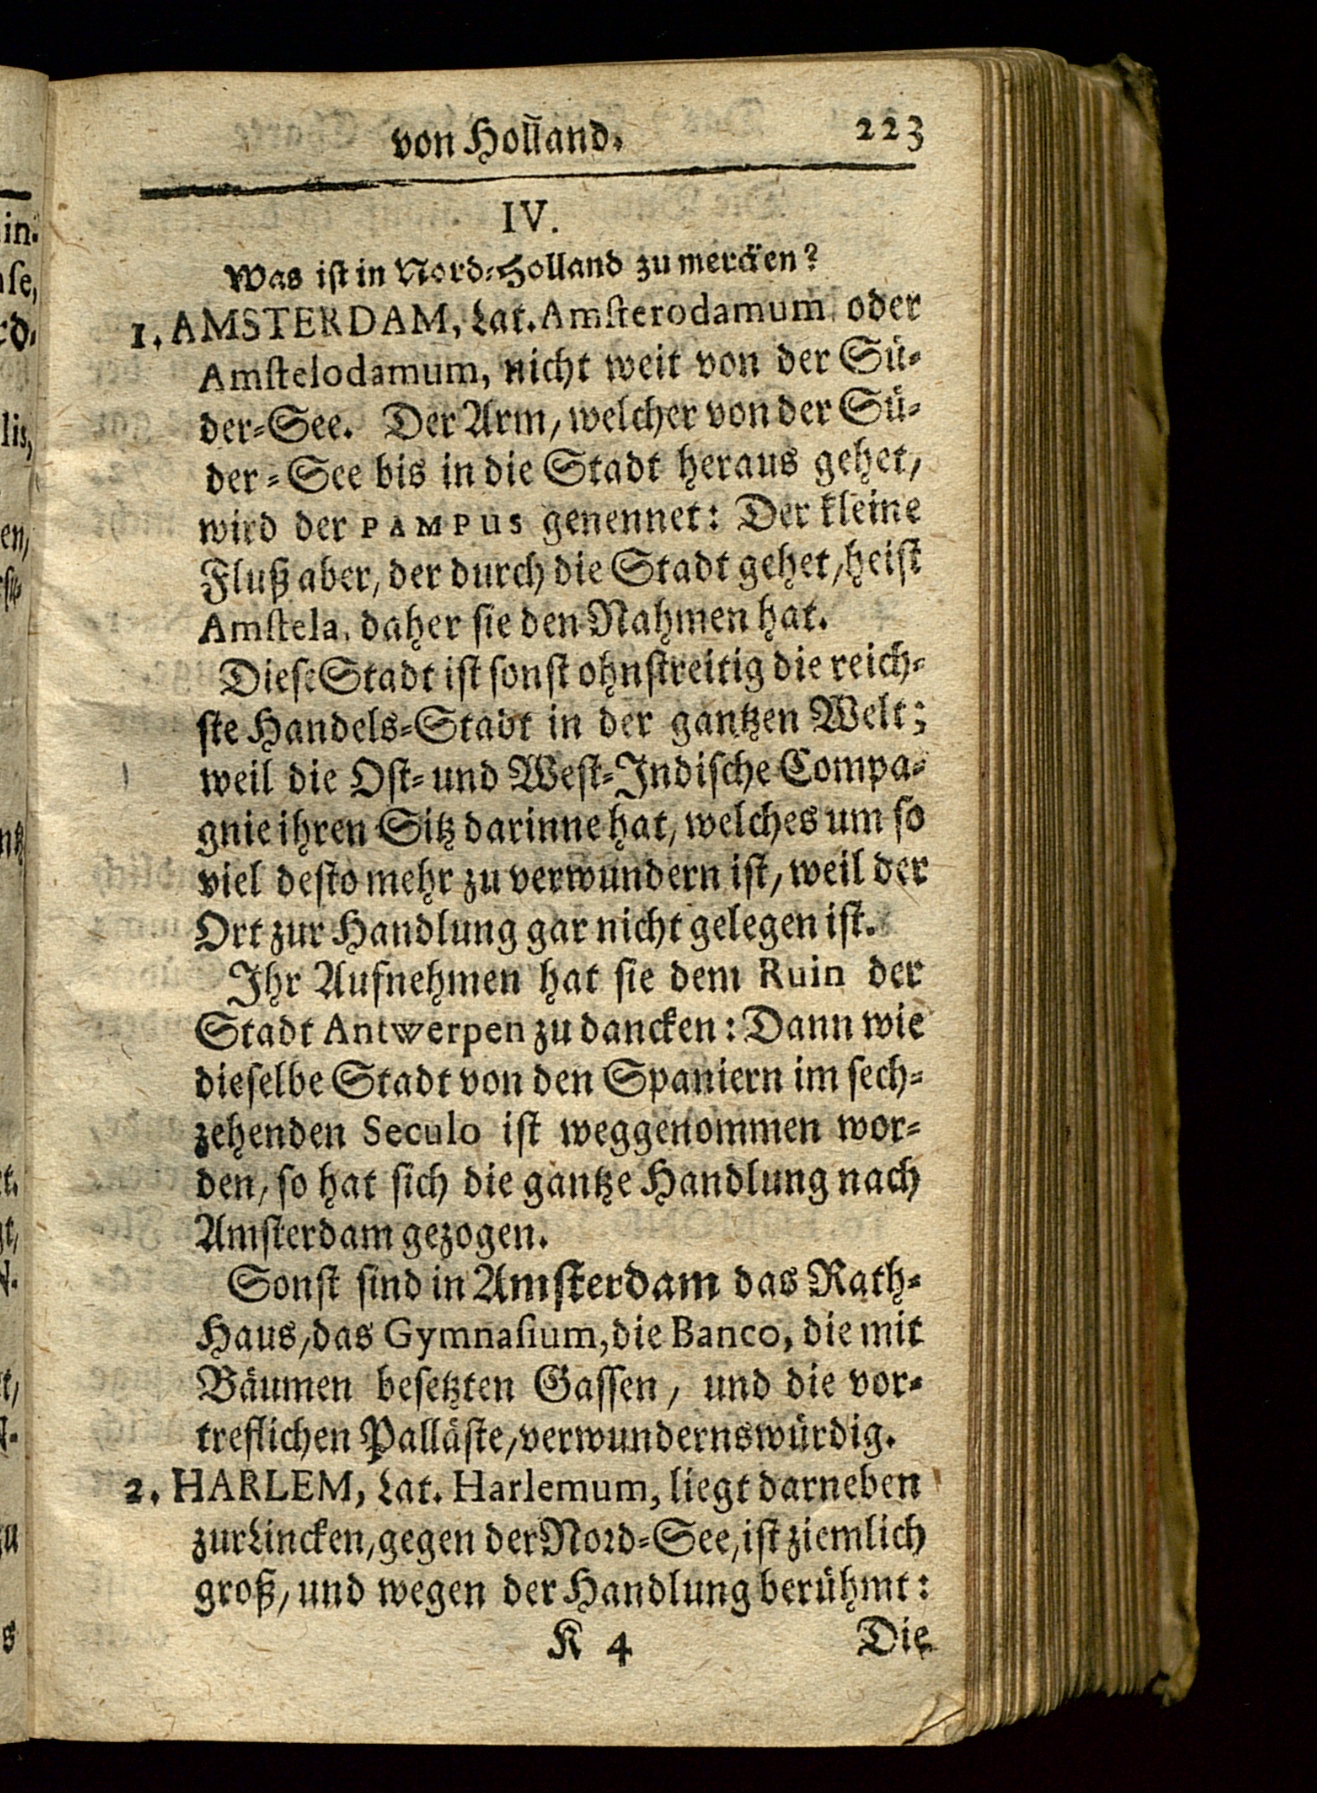 von Holland. 223
IV.
Was ist in Nord-Holland zu mercken?
1. AMSTERDAM, Lat. Amsterodamum oder
Amstelodamum, nicht weit von der Sü-
der-See. Der Arm, welcher von der Sü-
der-See bis in die Stadt heraus gehet,
wird der PAMPUS genennet: Der kleine
Fluß aber, der durch die Stadt gehet, heist
Amstela, daher sie den Nahmen hat.
Diese Stadt ist sonst ohnstreitig die reich-
ste Handels-Stadt in der gantzen Welt;
weil die Ost- und West-Indische Compa-
gnie ihren Sitz darinne hat, welches um so
viel desto mehr zu verwundern ist, weil der
Ort zur Handlung gar nicht gelegen ist.
Ihr Aufnehmen hat sie dem Ruin der
Stadt Antwerpen zu dancken: Dann wie
dieselbe Stadt von den Spaniern im sech-
zehenden Seculo ist weggenommen wor-
den, so hat sich die gantze Handlung nach
Amsterdam gezogen.
Sonst sind in Amsterdam das Rath-
Haus, das Gymnasium, die Banco, die mit
Bäumen besetzten Gassen, und die vor-
treflichen Palläste, verwundernswürdig.
2. HARLEM, Lat. Harlemum, liegt darneben
zur Lincken, gegen der Nord-See, ist ziemlich
groß, und wegen der Handlung berühmt:
K 4 Die